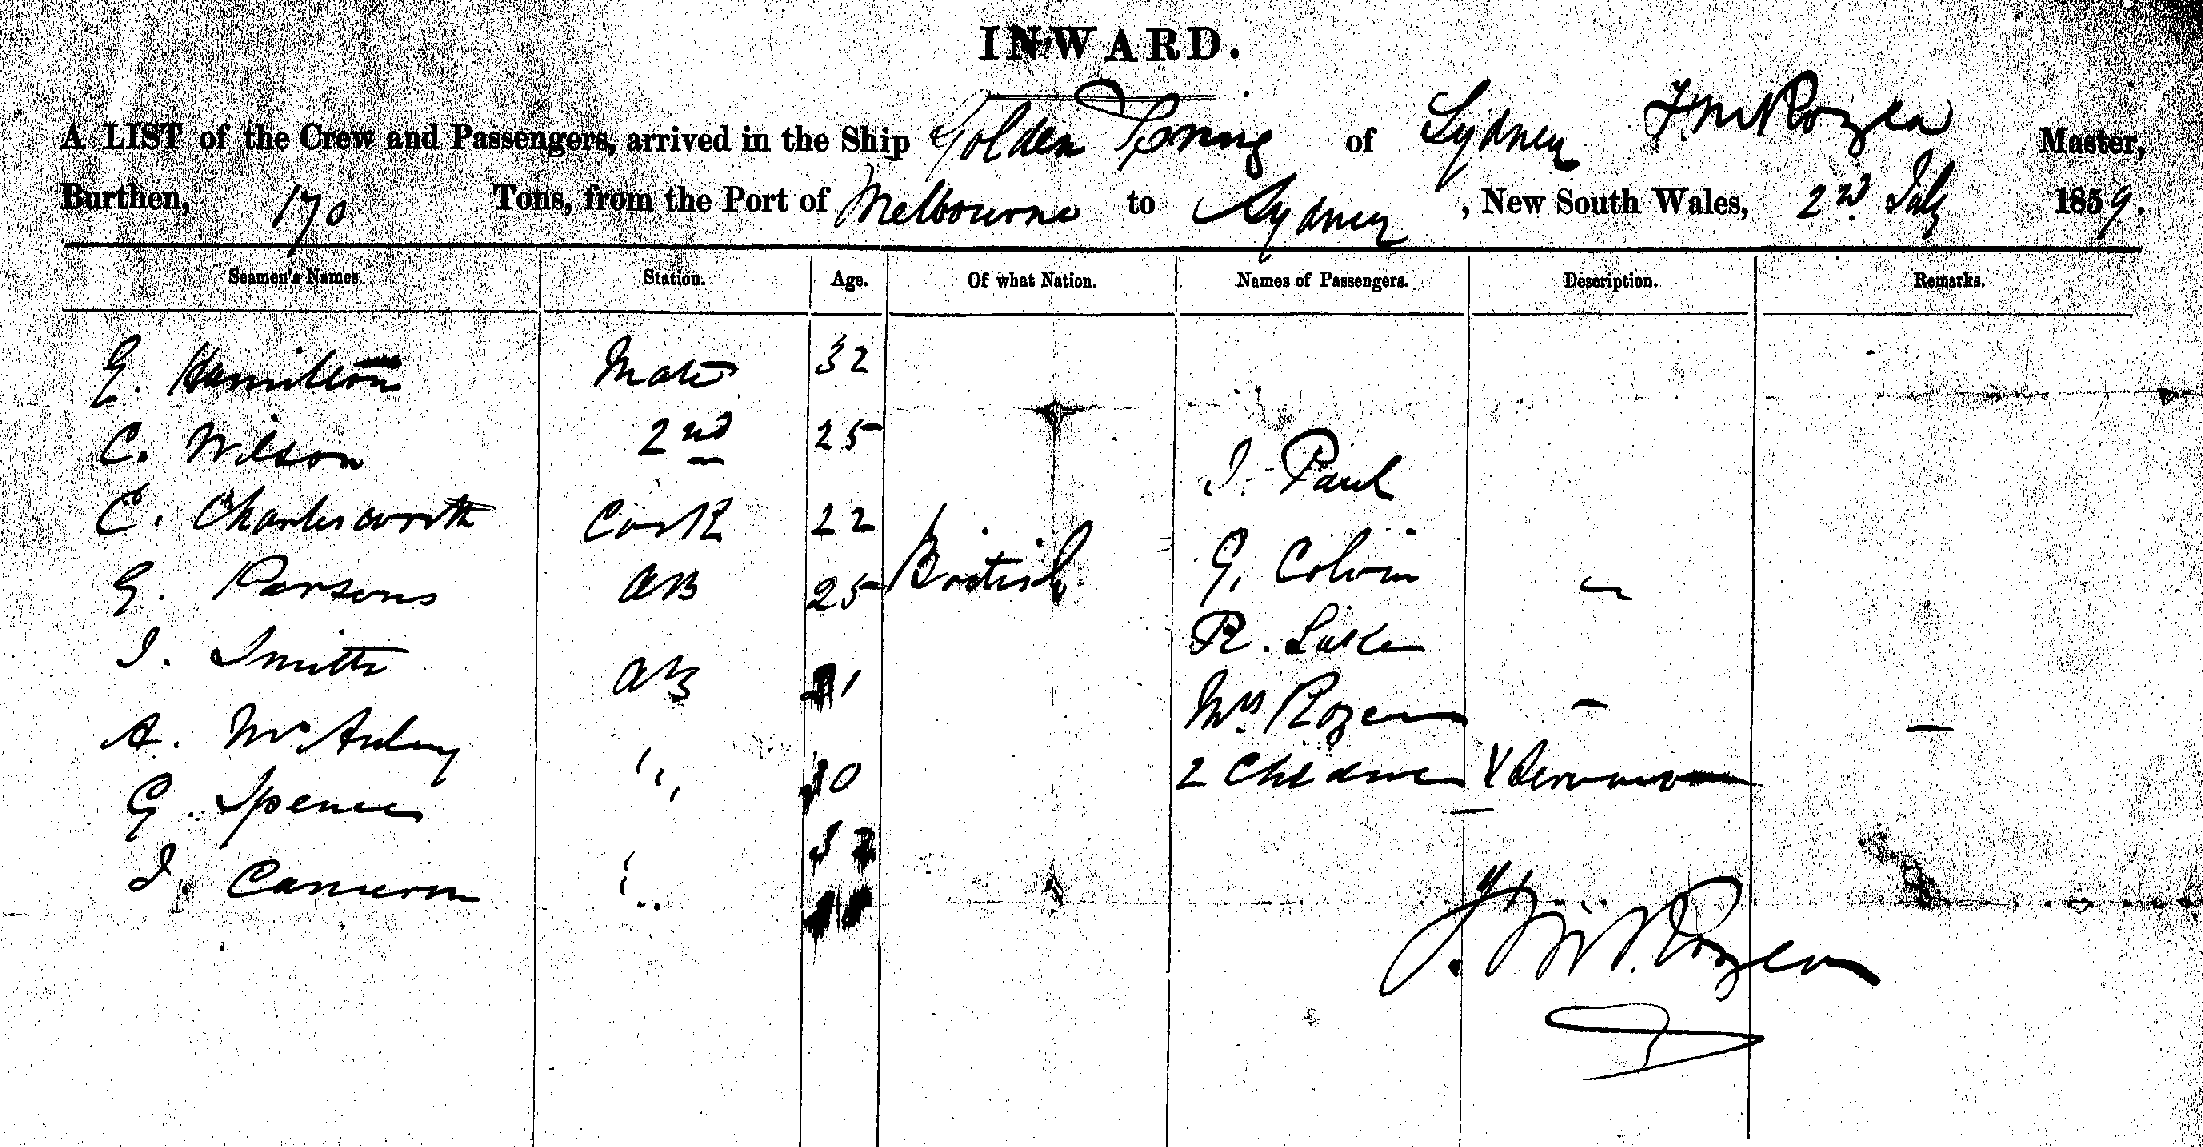 INWARD.
A LIST of the Crew and Passengers, arrived in the Ship Golden Spring of Sydney Master,
Burthen, 170 Tons, from the Port of Melbourne to Sydney, New South Wales, 2nd July 1859.
Seamen's Names. Station. Age. Of what Nation. Names of Passengers. Description. Remarks.
G. Hamilton Mate 32
C. Wilson 2nd 25 J. Paul
C. Charlesworth Cook 22
G. Parsons AB 25 British G. Colvin
J. Smith AB R. Luke
A. McAuley " Mrs Rozea
G. Spence 2 Children
J. Cameron "
Rozea